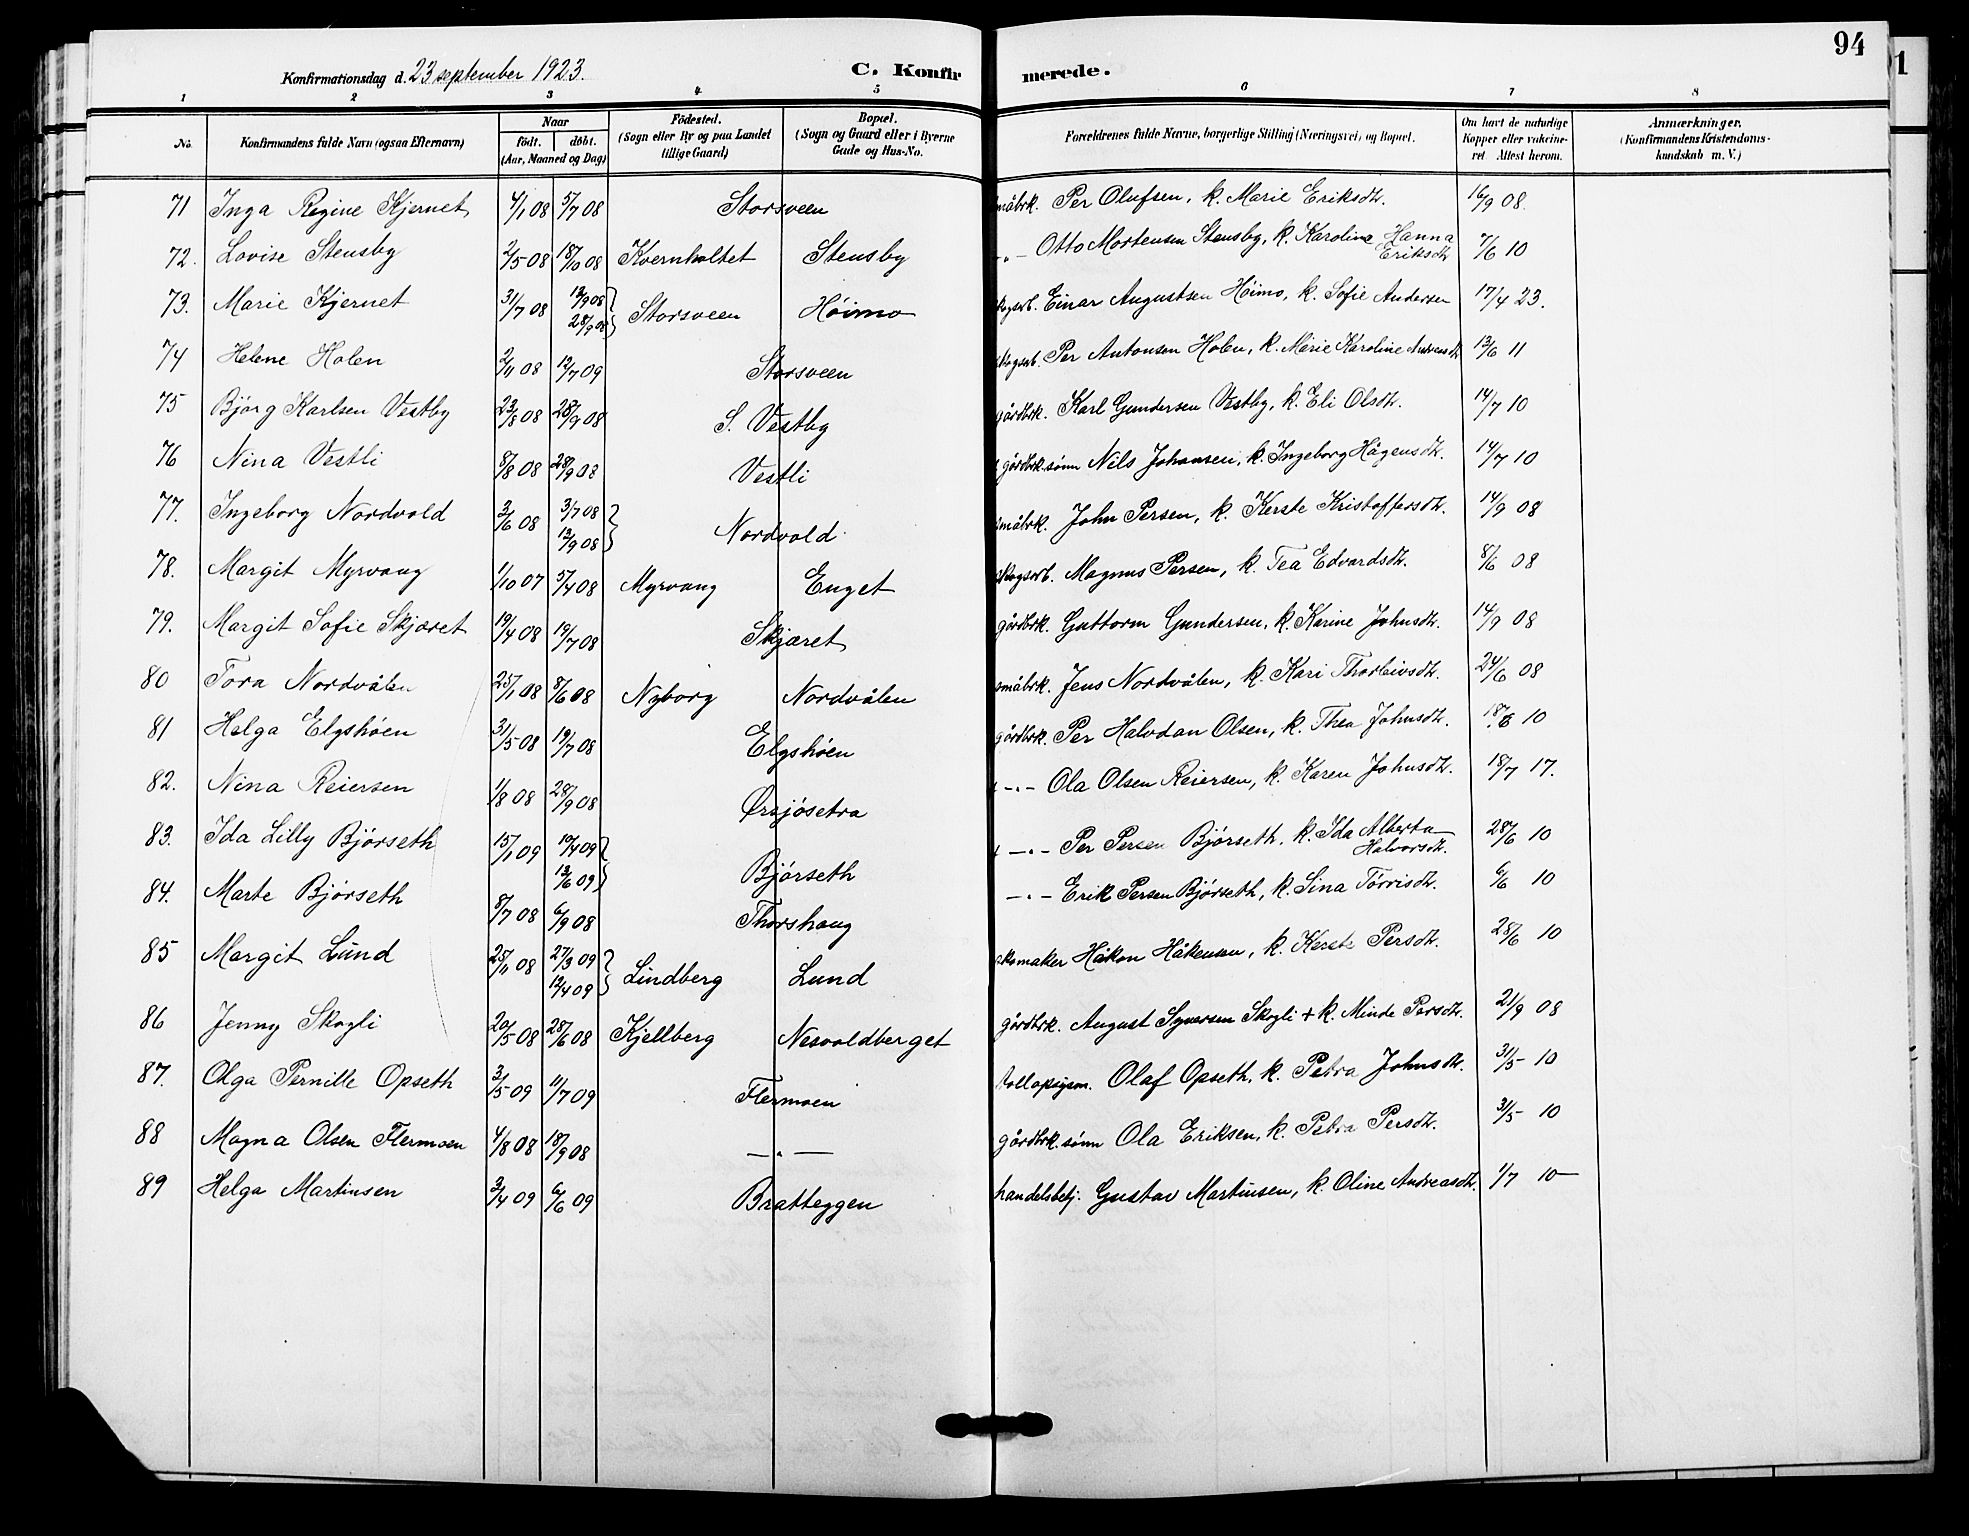 94
1
Konfirmationsdag d. 23 september 1923. C. Konfirmerede.
1 2 3 4 5 6 7 8
No. Konfirmandens fulde Navn (ogsaa Efternavn) Naar født. døbt. (Aar, Maaned og Dag) Fødested. (Sogn eller By og paa Landet tillige Gaard) Bopæl. (Sogn og Gaard eller i Byerne Gade og Hus-No. Forældrenes fulde Navne, borgerlige Stilling (Næringsvei) og Bopæl. Om havt de naturlige Kopper eller vakcineret Attest herom. Anmærkninger. (Konfirmandens Kristendomskundskab m. V.)
71 Inga Regine Kjernet 4/1 08 5/7 08 Storsveen småbrk. Per Olufsen, k. Marie Eriksdtr. 16/9 08.
72. Lovise Stensby 2/5 08 18/10 08 Kvernholtet Stensby -"- Otto Mortensen Stensby, k. Karoline Hanna Eriksdtr 7/6 10
73. Marie Kjernet 31/7 08 13/9 08 28/9 08 } Storsveen Höimo skogsarb. Einar Augustsen Höimo, k. Sofie Andersen 17/4 23.
74 Helene Holen 2/11 08 12/7 09 Storsveen skogsarb. Per Antonsen Holen, k. Marie Karoline Andreasdtr 13/6 11
75 Björg Karlsen Vestby 23/8 08 28/9 08 S. Vestby gårdbrk. Karl Gundersen Vestby, k. Eli Olsdtr. 14/7 10
76 Nina Vestli 8/8 08 28/9 08 Vestli gårdbrk.sönn Nils Johansen, k. Ingeborg Hågensdtr. 14/7 10
77. Ingeborg Nordvold 3/6 08 3/7 08 13/9 08 } Nordvold. småbrk. John Persen, k. Kerste Kristoffersdtr. 14/9 08
78. Margit Myrvang 1/10 07 5/4 08 Myrvang Enget skogsarb. Magnus Persen, k. Tea Edvardsdtr. 8/6 08
79. Margit Sofie Skjæret 19/4 08 19/7 08 Skjæret gårdbrk. Guttorm Gundersen, k. Karine Johnsdtr. 14/9 08
80 Tora Nordvålen 25/1 08 8/6 08 Nyborg Nordvålen småbrk. Jens Nordvålen, k. Kari Thorleivsdtr. 24/6 08
81 Helga Elgshöen 31/5 08 19/7 08 Elgshöen gårdbrk. Per Halvdan Olsen, k. Thea Johnsdtr. 18/6 10
82. Nina Reiersen 1/8 08 28/9 08 Ørsjösetra -"- Ola Olsen Reiersen, k. Karen Johnsdtr. 18/7 17.
83. Ida Lilly Björseth 15/1 09 10/4 09 13/6 09 } Björseth -"- Per Persen Björseth, k. Ida Alberta Halvorsdtr. 28/6 10
84. Marte Björseth 8/7 08 6/9 08 Thorshaug -"- Erik Persen Björseth, k. Lina Törrisdtr. 6/6 10
85 Margit Lund 25/11 08 27/3 09 12/4 09 } Lindberg Lund skomaker Håkon Håkensen, k. Kerste Persdtr. 28/6 10
86 Jenny Skogli 20/5 08 28/6 08 Kjellberg Nesvoldberget gårdbrk. August Syversen Skogli + k. Minde Persdtr. 21/9 08
87. Olga Pernille Opseth 3/5 09 11/7 09 Flermoen tollopsynsm. Olaf Opseth, k. Petra Johnsdtr. 31/5 10
88 Magna Olsen Flermoen 4/8 08 18/9 08 -"- gårdbrk.sönn Ola Eriksen, k. Petra Persdtr. 31/5 10
89 Helga Martinsen 3/4 09 6/6 09 Bratteggen handelsbetj. Gustav Martinsen, k. Oline Andreasdtr. 1/7 10